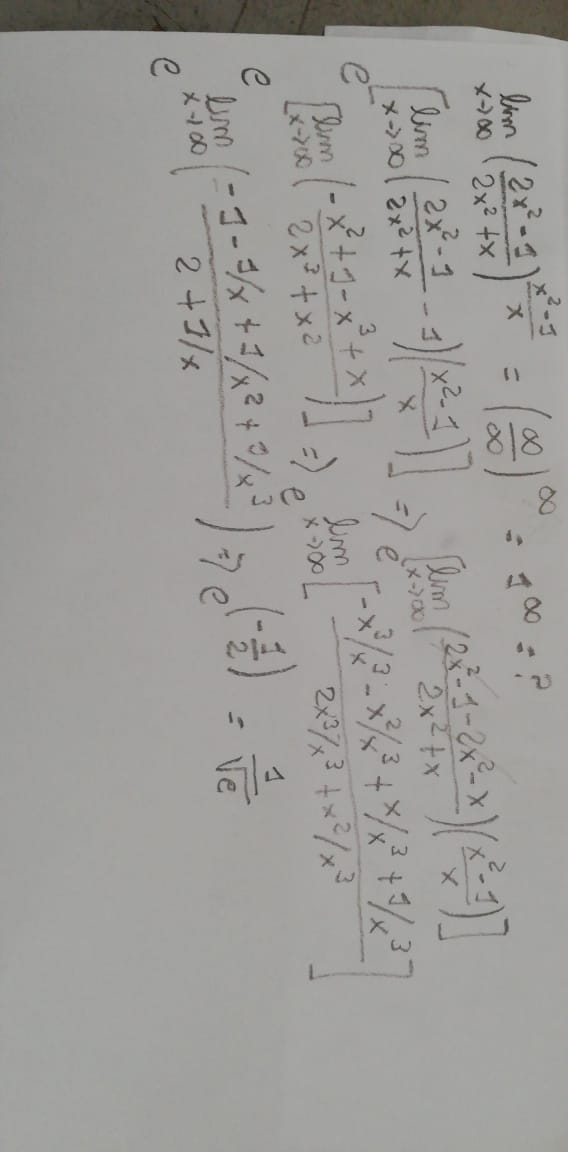 lim x→∞ ((2x²-1)/(2x²+x))^((x²-1)/x) = (∞/∞)^∞ = 1^∞ = ?
e^[lim x→∞ ((2x²-1)/(2x²+x) - 1)((x²-1)/x)] => e^[lim x→∞ ((2x²-1-2x²-x)/(2x²+x))((x²-1)/x)]
e^[lim x→∞ ((-x²+1-x³+x)/(2x³+x²))] => e^lim x→∞ [(-x³/x³-x²/x³+x/x³+1/x³)/(2x³/x³+x²/x³)]
e^lim x→∞ ((-1-1/x+1/x²+1/x³)/(2+1/x)) => e^(-1/2) = 1/√e